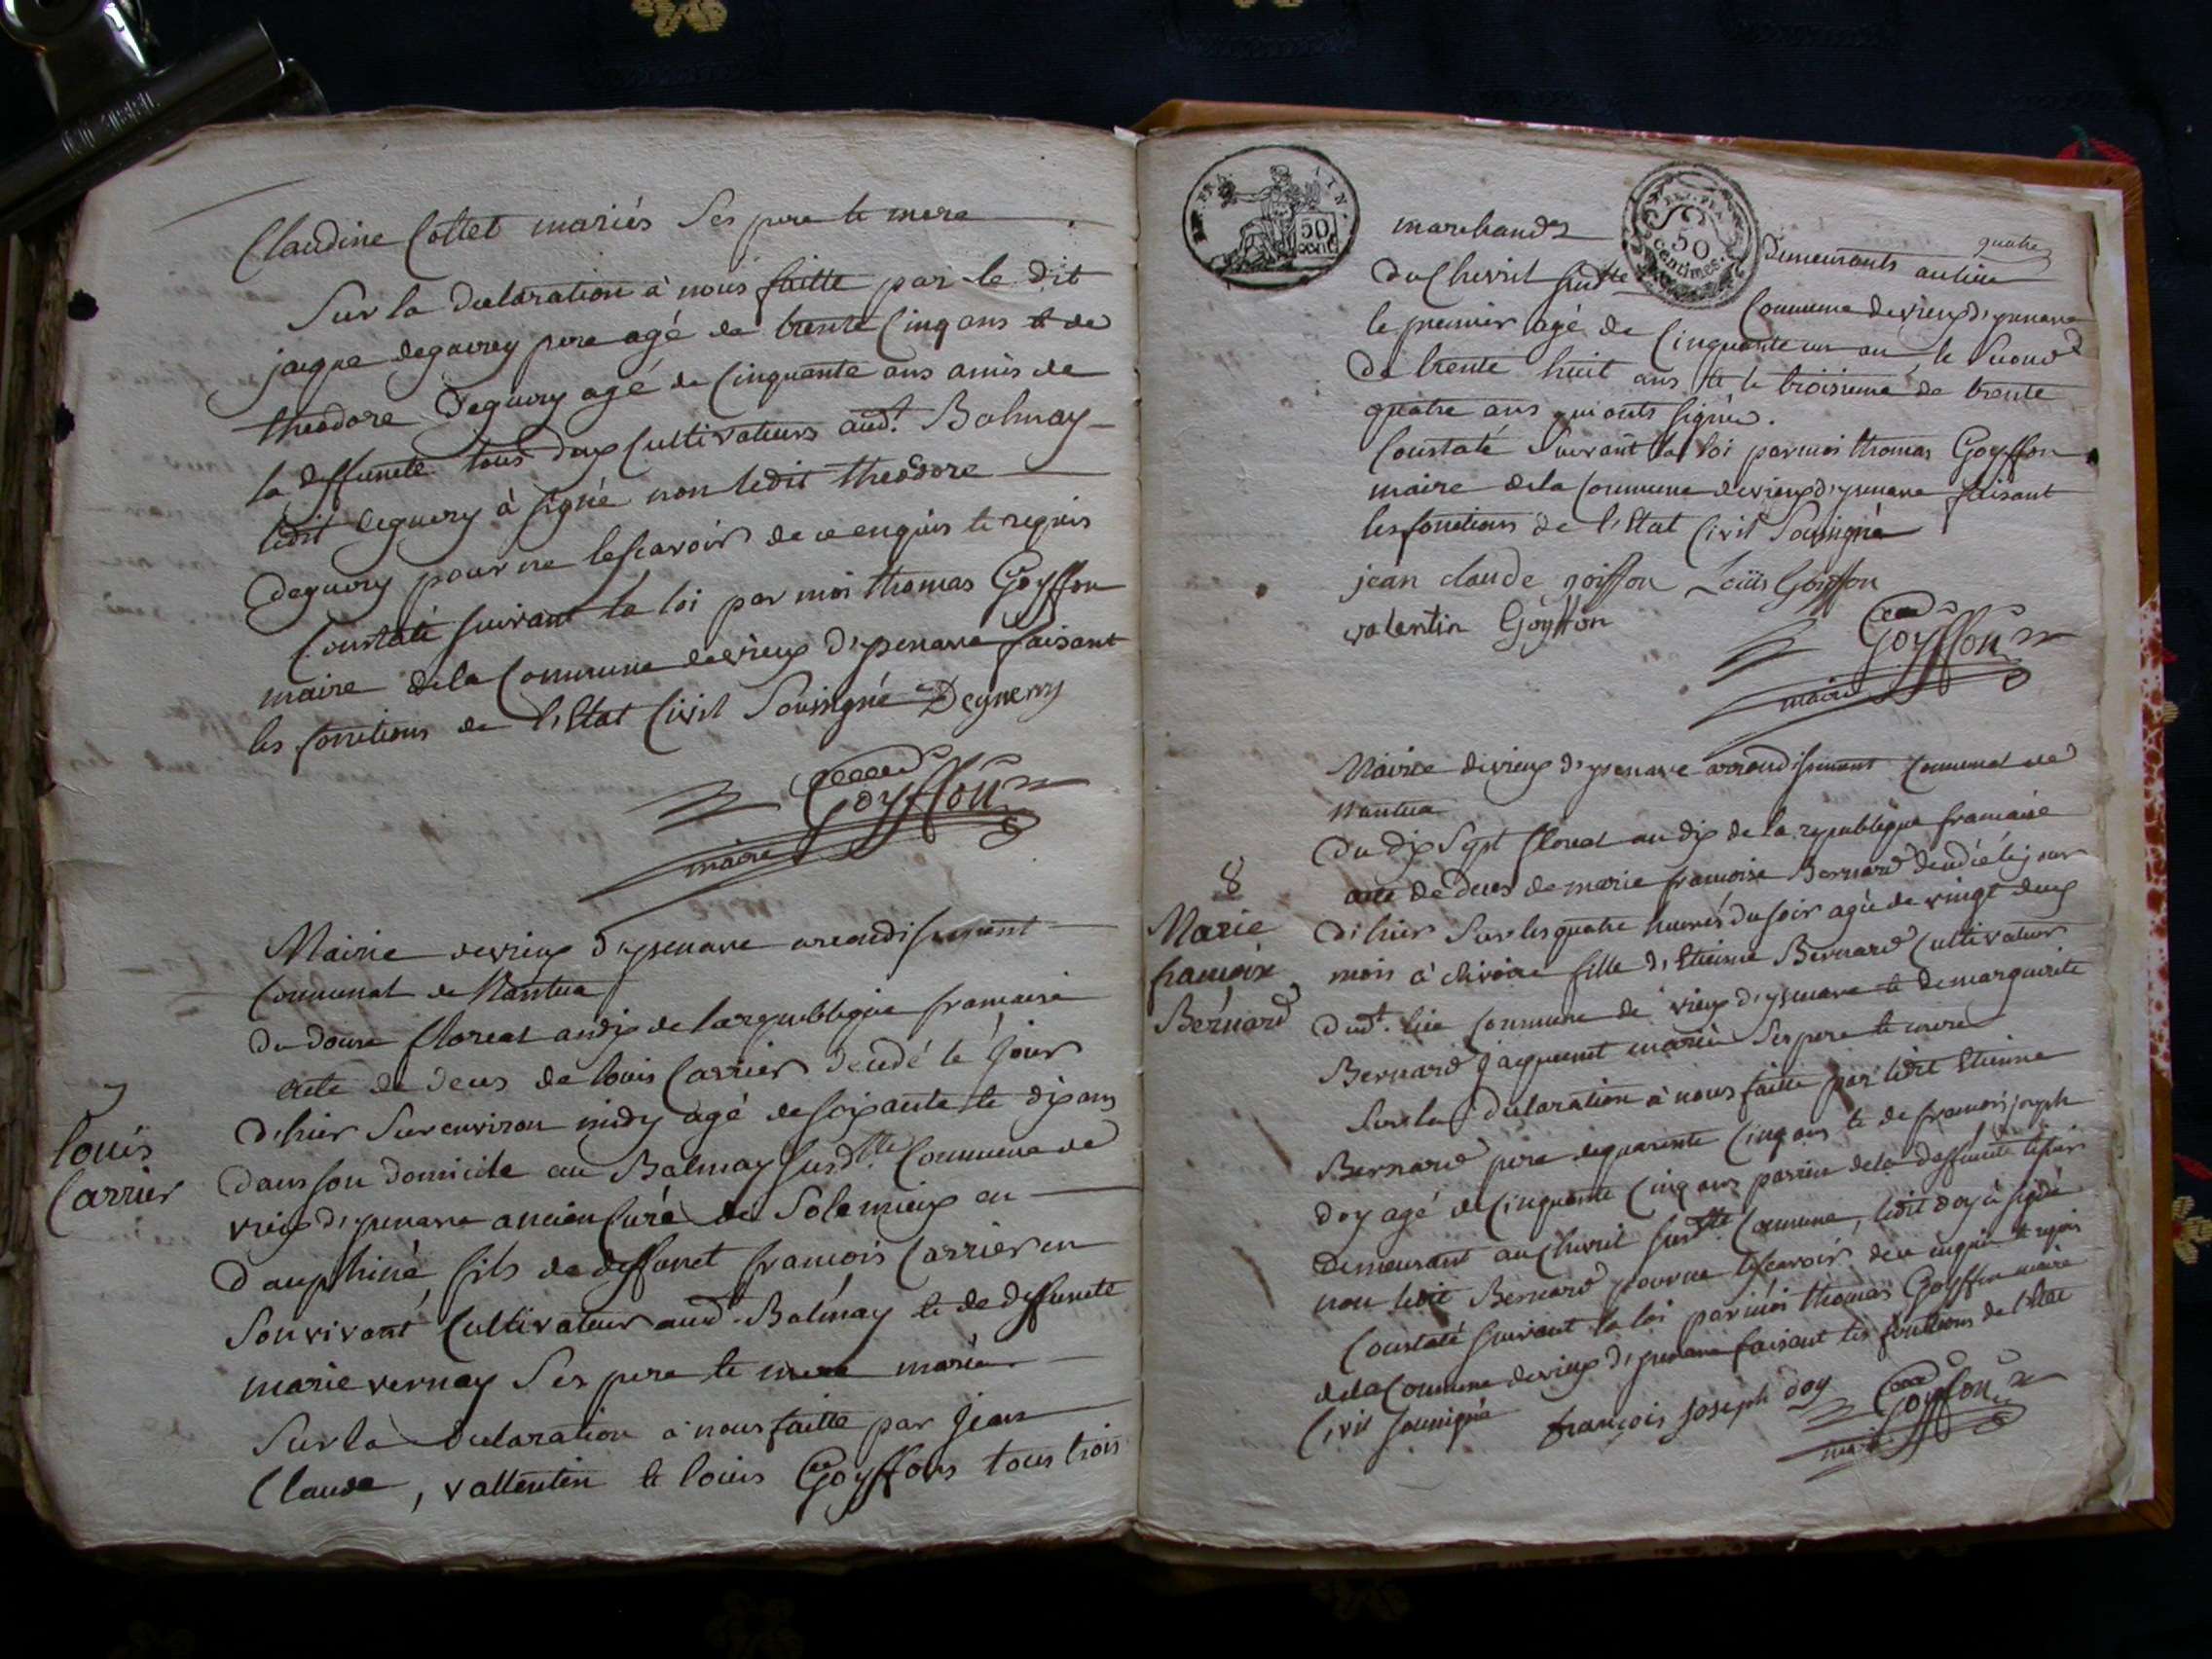 Claudine Collet mariés Ses pere te mere
Sur la declaration à nous faitte par le dit
jacque deguerey pere agé de trente Cinq ans te de
theodore Deguery agé de Cinquante ans amis de
la deffuncte tous deux Cultivateurs aud.t Balmay
ledit deguery à signé non ledit theodore
Deguery pour ne le scavoir de ce enquis te requis
Constaté suivant la loi par moi thomas Goyffon
maire de la Commune devieux d'ysenave faisant
les fonctions de l'Etat Civil Soussigné Deguerry
Goyffon
maire
Mairie devieux d'ysenave arrondissement
Communal de Nantua
Du douze floreal an dix de la republique francaise
7
Acte de deces de louis Carrier decedé le jour
louis
Carrier
d'hier Sur environ midy agé de soixante te dix ans
dans son domicile au Balmay susd.tte Commune de
vieux d'ysenave ancien Curé de Solemieux en
Dauphiné, fils de deffunct francois Carrier en
Son vivant Cultivateur aud.t Balmay te de deffuncte
marie vernay Ses pere te mere mariés
Sur la declaration à nous faitte par Jean
Claude, vallentin te louis Goyffons tous trois
REP. FRA. 50 CENT.
REP. FRA. 50 Centimes.
marchands Demeurants au lieu
quatre
du Chevril susd.tte Commune devieux d'ysenave
le premier agé de Cinquante un an, le Second
de trente huit ans te le troisieme de trente
quatre ans qui onts signés.
Constaté Suivant la loi par moi thomas Goyffon
maire de la Commune devieux d'ysenave faisant
les fonctions de l'Etat Civil Soussigné
jean claude goiffon Loüis Goyffon
valentin Goyffon
Goyffon
maire
Mairie devieux d'ysenave arrondissement Communal de
Nantua
Du dix Sept floreal an dix de la republique francaise
8
Marie
francoise
Bernard
acte de deces de marie francoise Bernard decedée le jour
d'hier Sur les quatre heures du soir agée de vingt deux
mois à chivoire fille d'Etienne Bernard Cultivateur
dud.t lieu Commune de vieux d'ysenave te de marguerite
Bernard Jacquenet mariés Ses pere te mere
Sur la declaration à nous faitte par ledit Etienne
Bernard pere de quarente Cinq ans te de francois joseph
Doy agé de Cinquante Cinq ans parrein de la deffuncte
demeurant au Chevril susd.tte Commune, ledit doy à signé
non ledit Bernard pour ne le scavoir de ce enquis te requis
Constaté suivant la loi par moi thomas Goyffon maire
de la Commune devieux d'ysenave faisant les fonctions de l'Etat
Civil soussigné françois joseph doy
Goyffon
maire